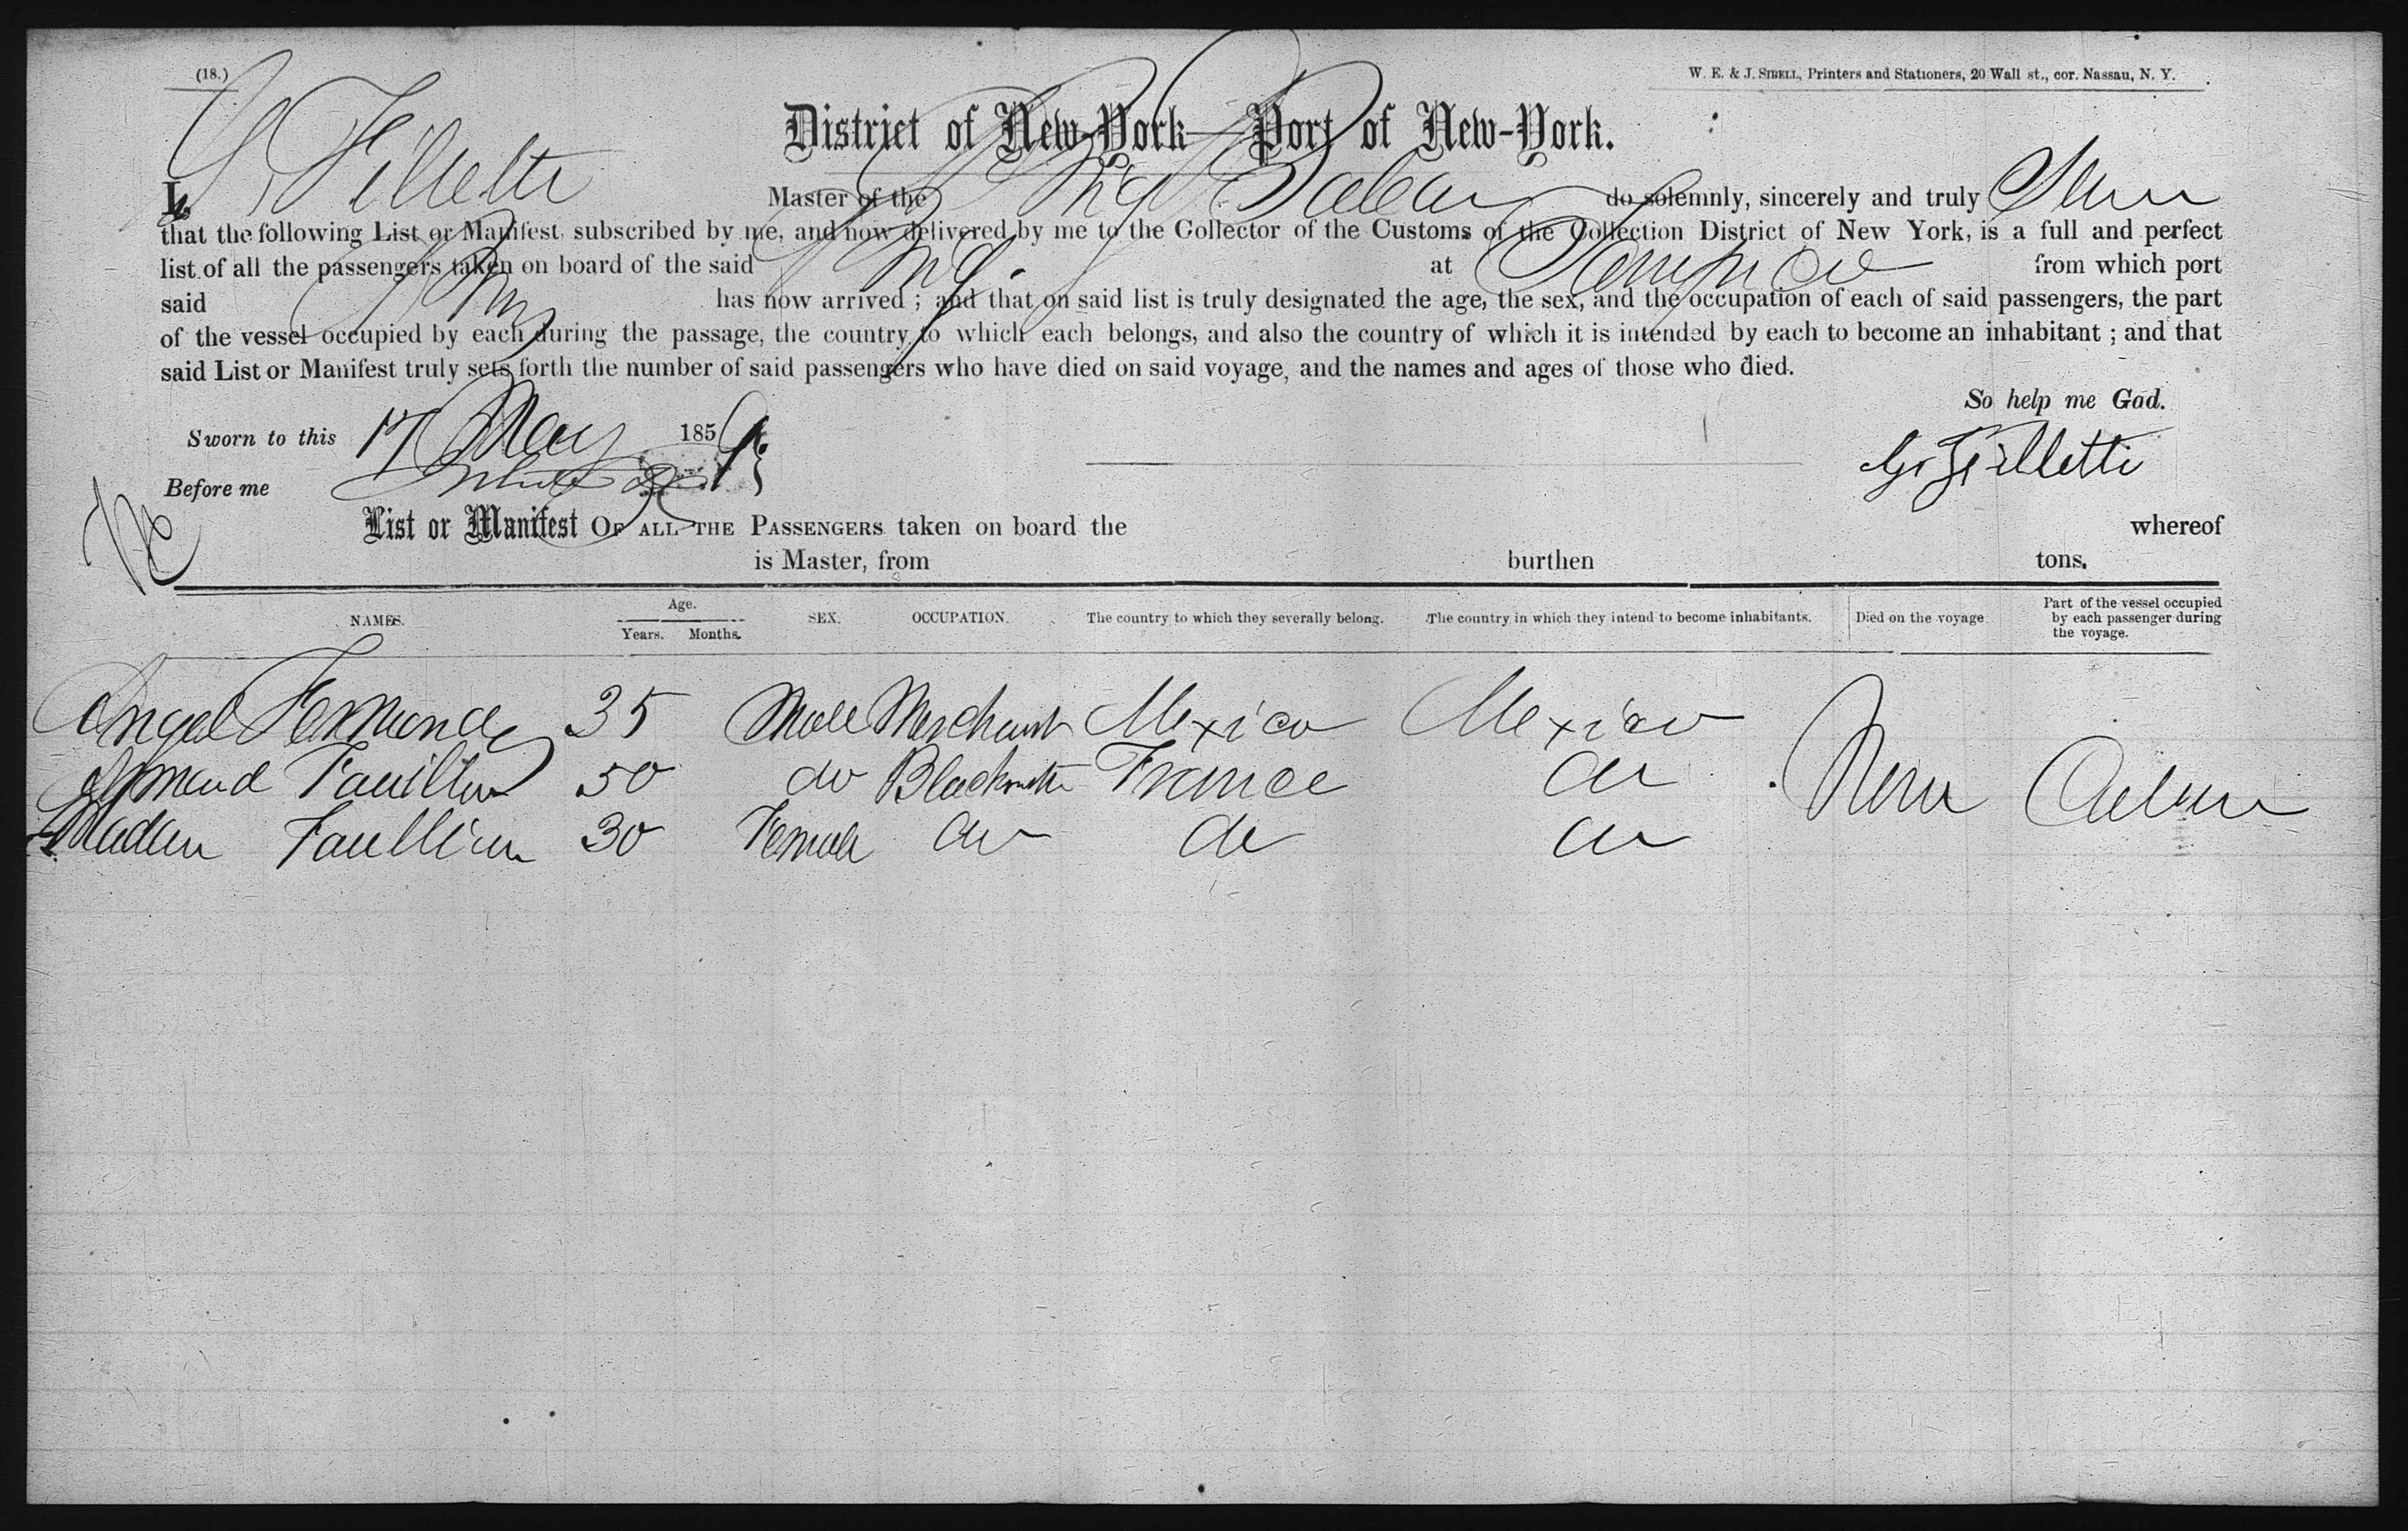 (18.)
W. E. & J. SIBELL, Printers and Stationers, 20 Wall st., cor. Nassau, N. Y.
District of New-York—Port of New-York.
I, G. Fillette Master of the Brig do solemnly, sincerely and truly
that the following List or Manifest, subscribed by me, and now delivered by me to the Collector of the Customs of the Collection District of New York, is a full and perfect
list of all the passengers taken on board of the said Brig at Tampico from which port
said Brig has now arrived ; and that on said list is truly designated the age, the sex, and the occupation of each of said passengers, the part
of the vessel occupied by each during the passage, the country to which each belongs, and also the country of which it is intended by each to become an inhabitant ; and that
said List or Manifest truly sets forth the number of said passengers who have died on said voyage, and the names and ages of those who died.
So help me God.
Sworn to this 17 May 1859
G. Fillette
Before me
List or Manifest OF ALL THE PASSENGERS taken on board the whereof
is Master, from burthen tons.
NAMES. Age. Years. Months. SEX. OCCUPATION. The country to which they severally belong. The country in which they intend to become inhabitants. Died on the voyage Part of the vessel occupied by each passenger during the voyage.
Angel 35 Male Merchant Mexico Mexico
50 do Blacksmith France do
30 Female do do do